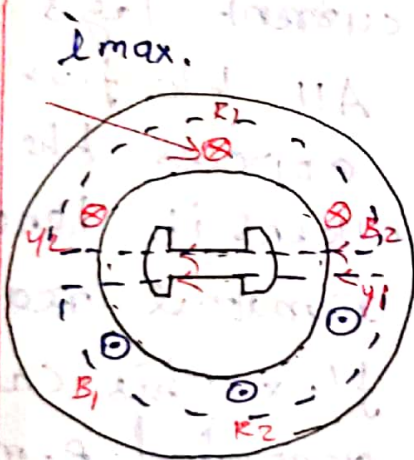 i max.
R2
Y2
B2
Y1
B1
R2